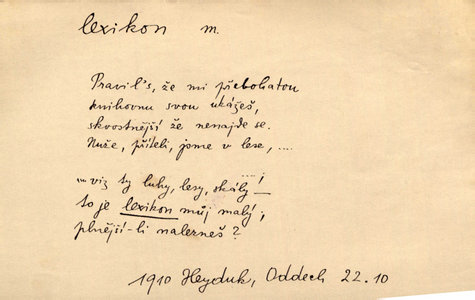 lexikon m.
Pravil's, že mi přebohatou
knihovnu svou ukážeš,
skvostnější že nenajde se.
Nuže, příteli, jsme v lese, ....
... viz ty luhy, lesy, skály ....!
to je lexikon můj malý;
plnější-li nalezneš?
1910 Heyduk, Oddech 22.10